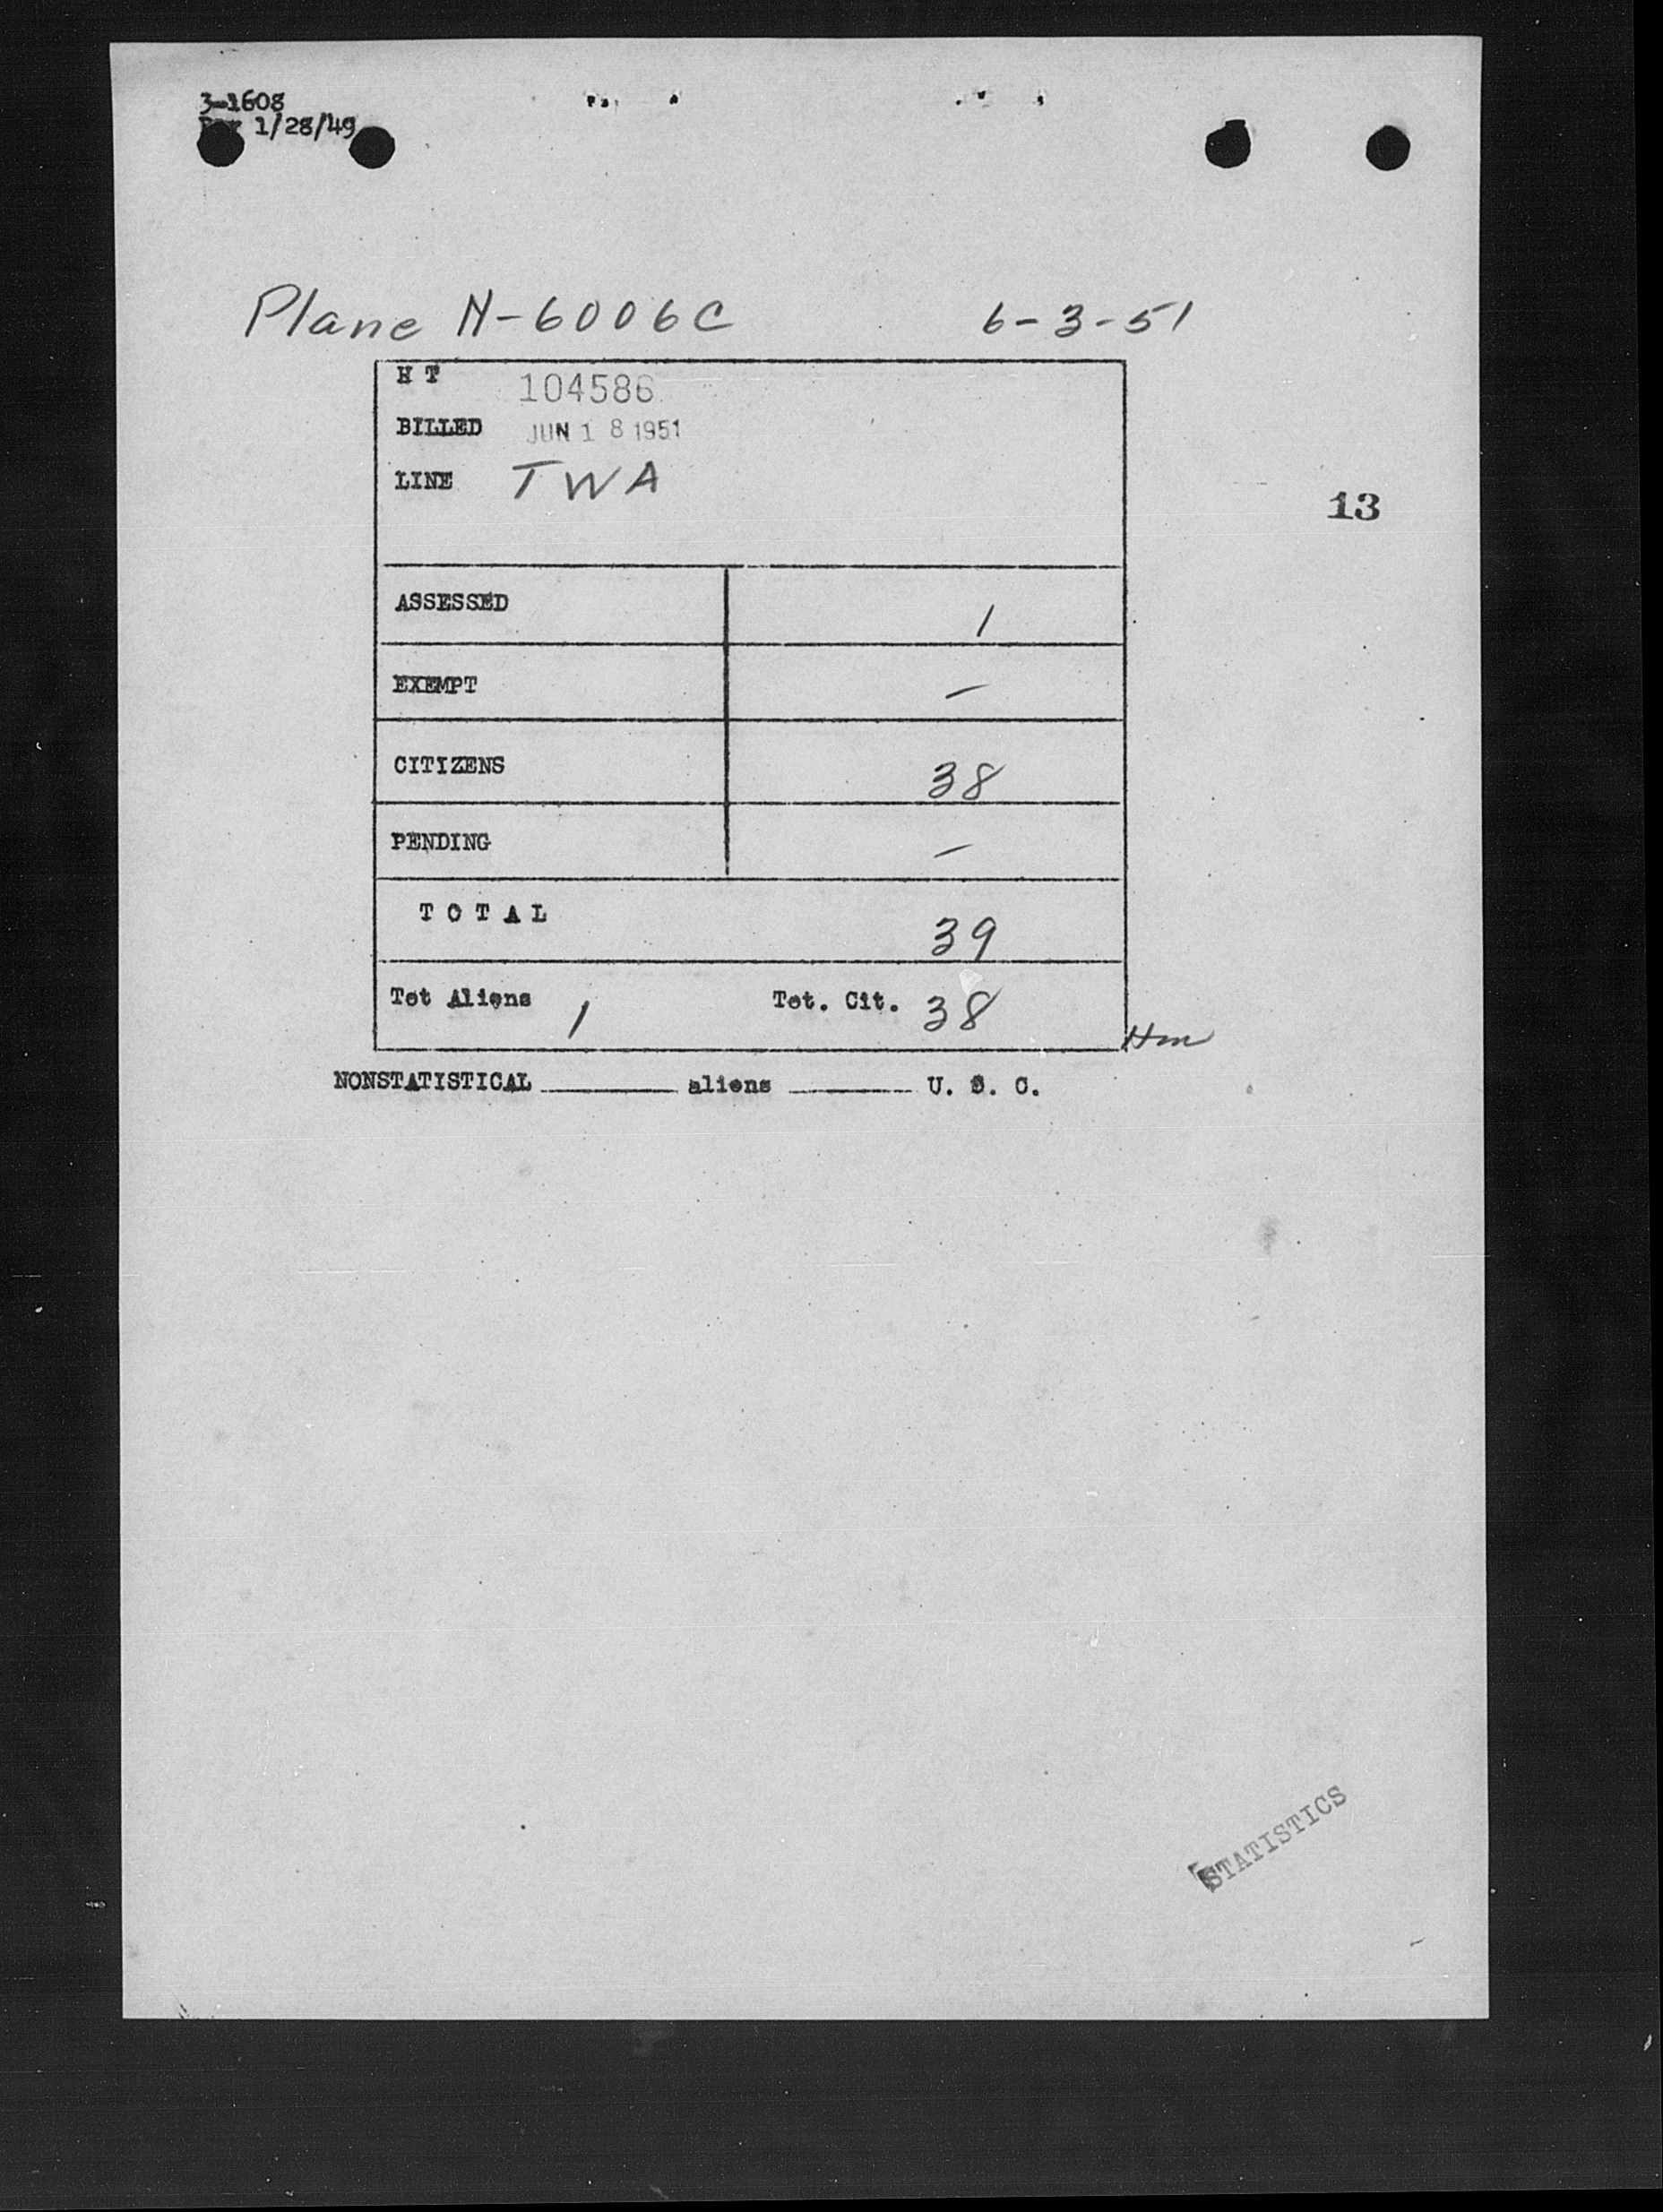 3-1608
1/28/49
Plane N-6006C 6-3-51
H T 104586
BILLED JUN 18 1951
LINE TWA
13
ASSESSED 1
EXEMPT —
CITIZENS 38
PENDING —
TOTAL 39
Tot Aliens 1 Tot. Cit. 38
Hm
NONSTATISTICAL ______ aliens ______ U. S. C.
STATISTICS